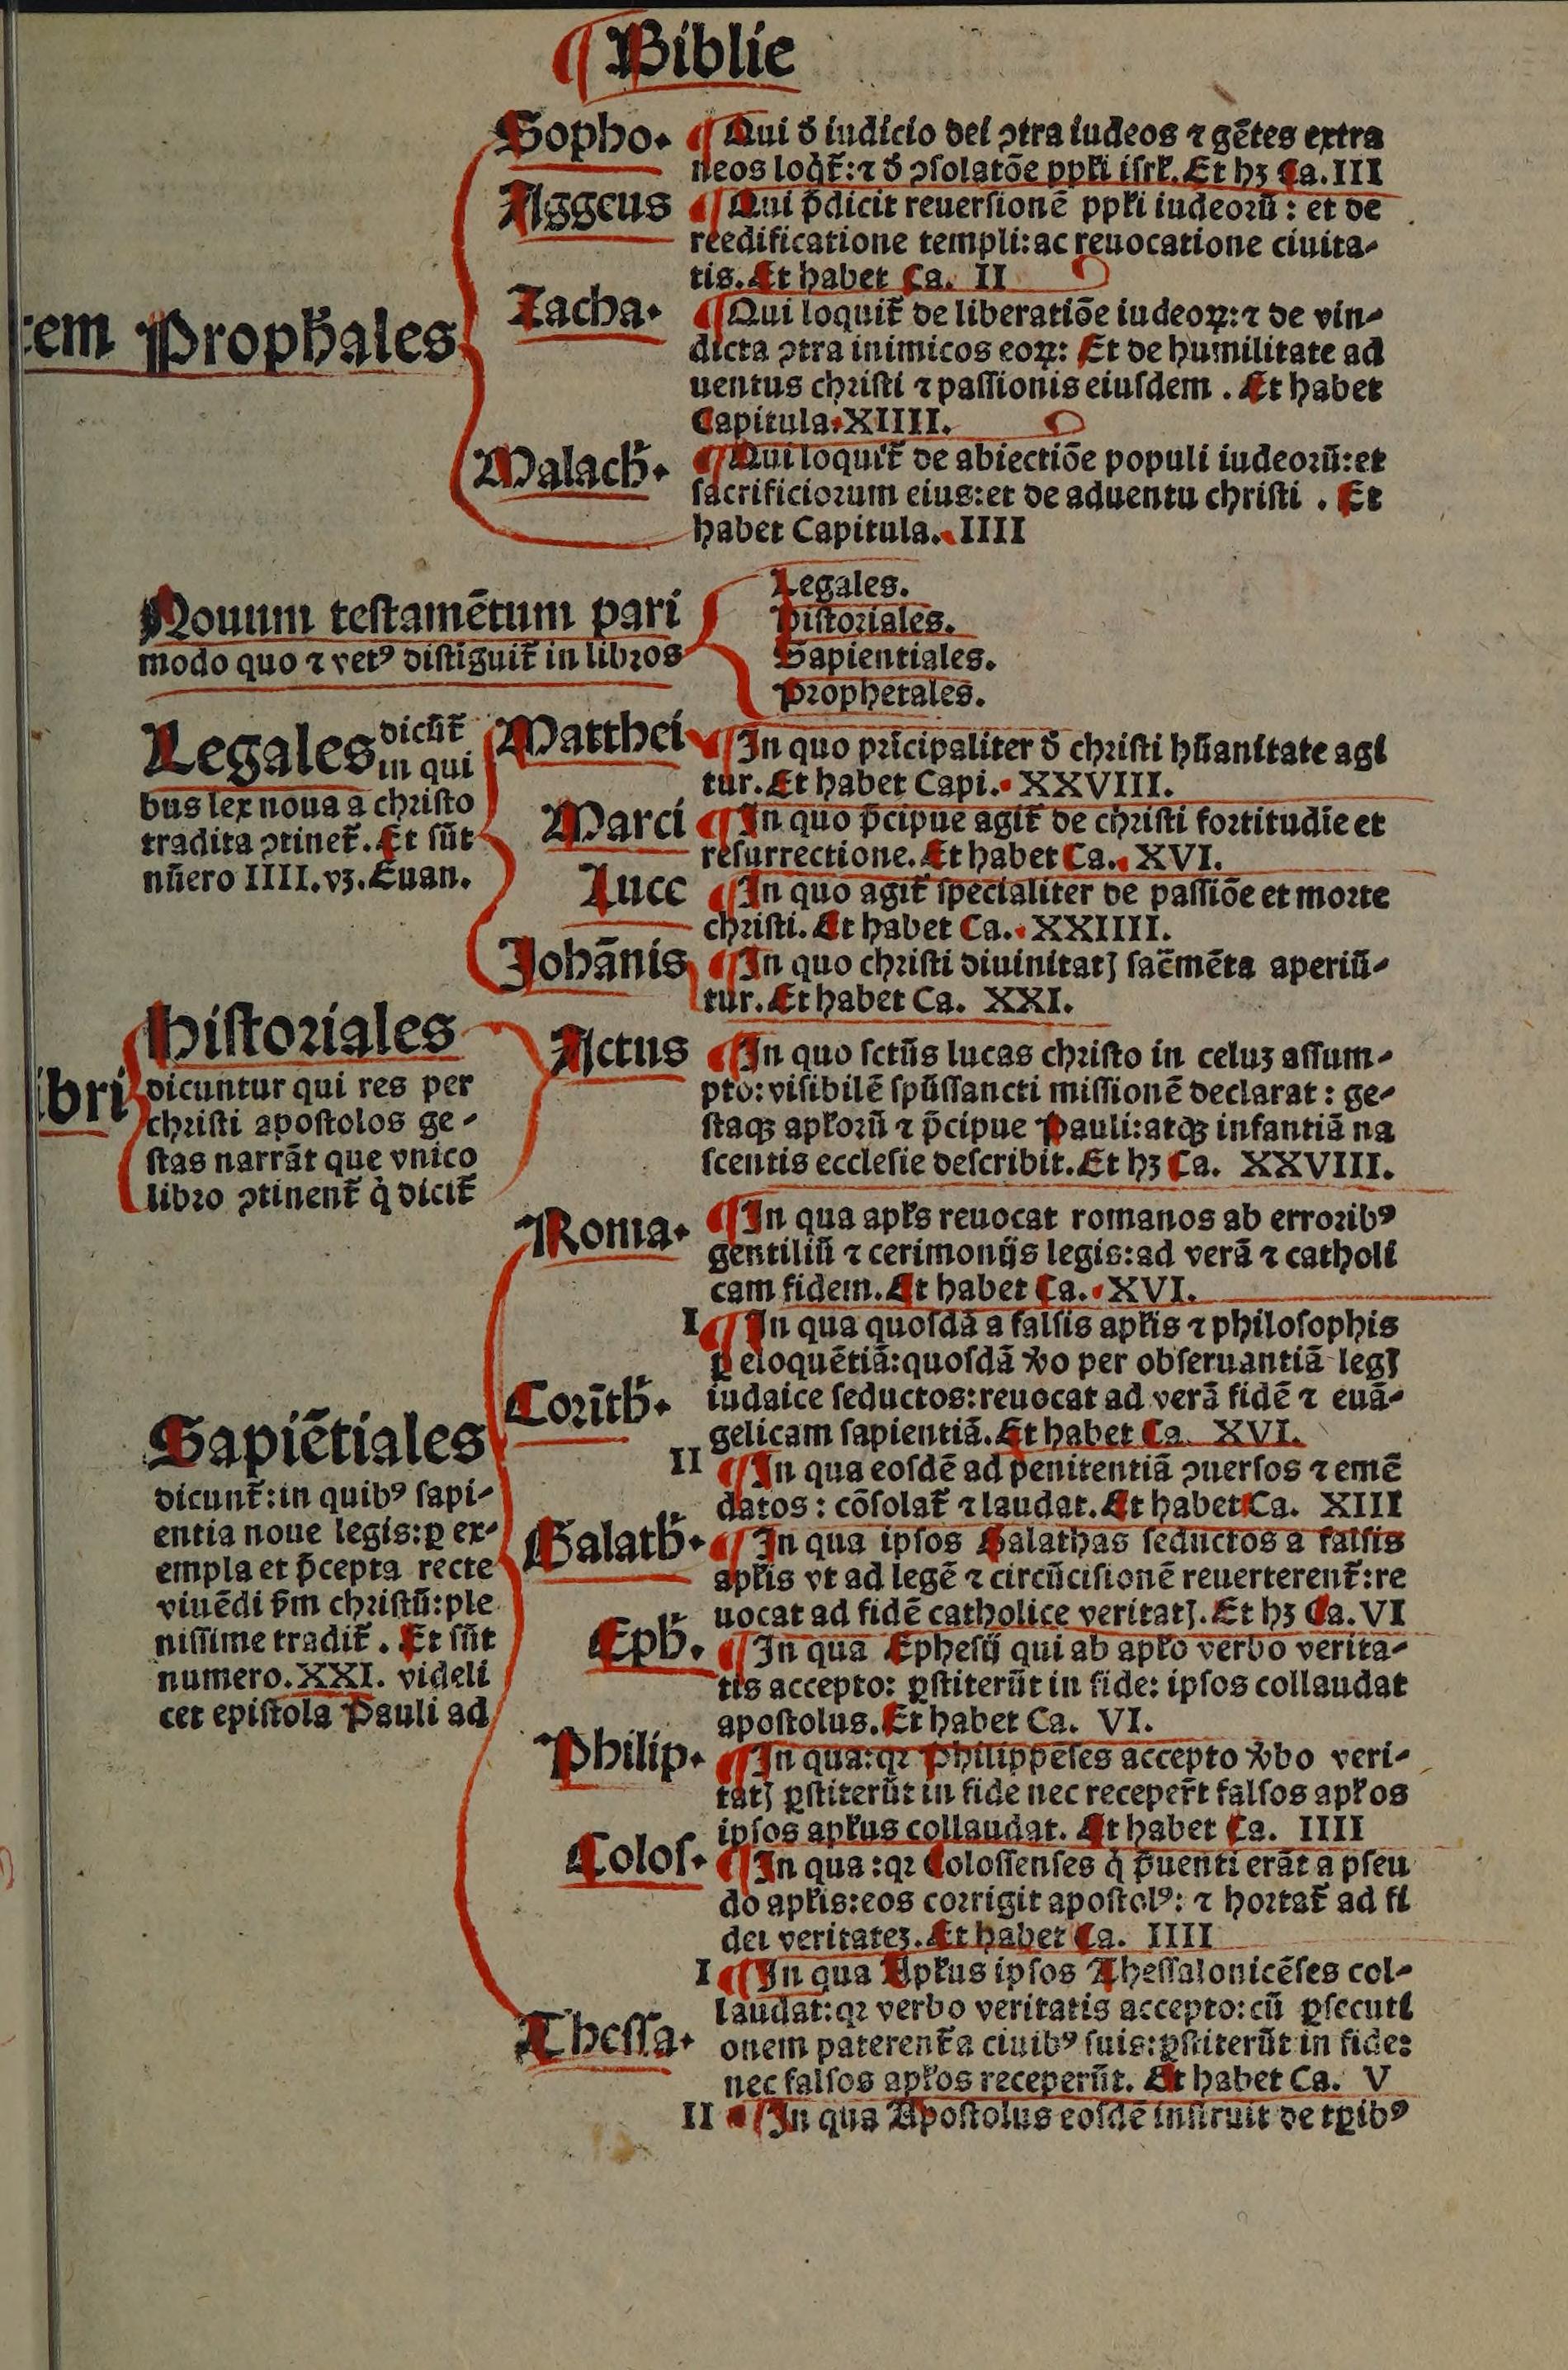 Biblie
Sopho.
Qui ð iudicio dei ↄtra iudeos ⁊ gẽtes extra
neos loq̇t᷑:⁊ ð ↄſolatõe ppl̓i iſrl̓. Et hꝫ Ca. III
Aggeus
Qui p̃dicit reuerſionẽ ppl̓i iudeoꝛũ : et de
reedificatione templi: ac reuocatione ciuita⸗
tis. Et habet Ca. II
Zacha.
Qui loquit᷑ de liberatiõe iudeoꝝ: ⁊ de vin⸗
dicta ↄtra inimicos eoꝝ: Et de humilitate ad
uentus chꝛiſti ⁊ paſſionis eiuſdem . Et habet
Capitula. XIIII.
tem Prophãles
Malach̃.
Qui loquit᷑ de abiectiõe populi iudeoꝛũ: et
ſacrificioꝛum eius: et de aduentu chriſti . Et
habet Capitula. IIII
Nouum teſtamẽtum pari
modo quo ⁊ vetꝰ diſtiguit᷑ in libꝛos
Legales.
Hiſtoꝛiales.
Sapientiales.
Pꝛophetales.
Legales dicũt᷑
in qui
bus lex noua a chꝛiſto
tradita ↄtinet᷑. Et ſũt
nũero IIII. vꝫ. Euan.
Matthei
In quo pꝛĩcipaliter ð chꝛiſti hũanitate agi
tur. Et habet Capi. XXVIII.
Marci
In quo p̃cipue agit᷑ de chꝛiſti foꝛtitudĩe et
reſurrectione. Et habet Ca. XVI.
Luce
In quo agit᷑ ſpecialiter de paſſiõe et moꝛte
chꝛiſti. Et habet Ca. XXIIII.
Johãnis
In quo chꝛiſti diuinitatꝭ ſacͫmẽta aperiũ⸗
tur. Et habet Ca. XXI.
bri
Hiſtoꝛiales
dicuntur qui res per
chꝛiſti apoſtolos ge⸗
ſtas narrãt que vnico
libꝛo ↄtinent᷑ q̇ dicit᷑
Actus
In quo ſctũs lucas chꝛiſto in celuꝫ aſſum⸗
pto: viſibilẽ ſpũſſancti miſſionẽ declarat : ge⸗
ſtaqꝫ apl̓oꝛũ ⁊ p̃cipue Pauli: atqꝫ infantiã na
ſcentis eccleſie deſcribit. Et hꝫ Ca. XXVIII.
Sapiẽtiales
dicunt᷑: in quibꝰ ſapi⸗
entia noue legis: ꝑ ex⸗
empla et p̃cepta recte
viuẽdi ẜm chꝛiſtũ: ple
niſſime tradit᷑ . Et ſũt
numero. XXI. videli
cet epiſtola Pauli ad
Roma.
In qua apl̓s reuocat romanos ab erroꝛibꝰ
gentiliũ ⁊ cerimonijs legis: ad verã ⁊ catholi
cam fidem. Et habet Ca. XVI.
Coꝛĩth̃.
I In qua quoſdã a falſis apl̓is ⁊ philoſophis
ꝑ eloquẽtiã: quoſdã ꝟo per obſeruantiã legꝭ
iudaice ſeductos: reuocat ad verã fidẽ ⁊ euã⸗
gelicam ſapientiã. Et habet Ca. XVI.
II In qua eoſdẽ ad penitentiã ↄuerſos ⁊ emẽ
datos : cõſolat᷑ ⁊ laudat. Et habet Ca. XIII
Galath̃.
In qua ipſos Galathas ſeductos a falſis
apl̓is vt ad legẽ ⁊ circũciſionẽ reuerterent᷑: re
uocat ad fidẽ catholice veritatꝭ. Et hꝫ Ca. VI
Eph̃.
In qua Epheſij qui ab apl̓o verbo verita⸗
tis accepto: ꝑſtiterũt in fide: ipſos collaudat
apoſtolus. Et habet Ca. VI.
Philip.
In qua: qꝛ Philippẽſes accepto ꝟbo veri⸗
tatꝭ ꝑſtiterũt in fide nec receper̃t falſos apl̓os
ipſos apl̓us collaudat. Et habet Ca. IIII
Coloſ.
In qua : qꝛ Coloſſenſes q̇ p̃uenti erãt a pſeu
do apl̓is: eos coꝛrigit apoſtolꝰ: ⁊ hoꝛtat᷑ ad fi
dei veritateꝫ. Et habet Ca. IIII
Theſſa.
I In qua Apl̓us ipſos Theſſalonicẽſes col⸗
laudat: qꝛ verbo veritatis accepto: cũ ꝑſecuti
onem paterent᷑ a ciuibꝰ ſuis: ꝑſtiterũt in fide:
nec falſos apl̓os receperũt. Et habet Ca. V
II In qua Apoſtolus eoſdẽ inſtruit de tꝑibꝰ